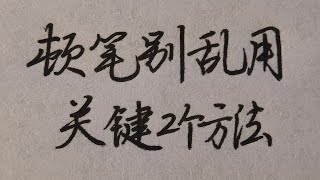 顿笔别乱用
关键2个方法